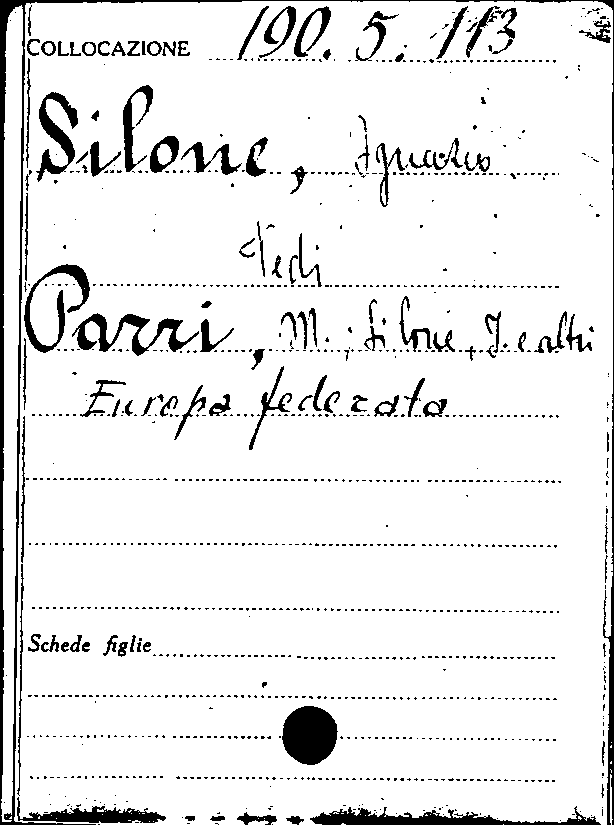 COLLOCAZIONE 190. 5. 113
Silone, Ignazio
Vedi
Parri, M.; Silone, I. e altri
Europa federata
Schede figlie